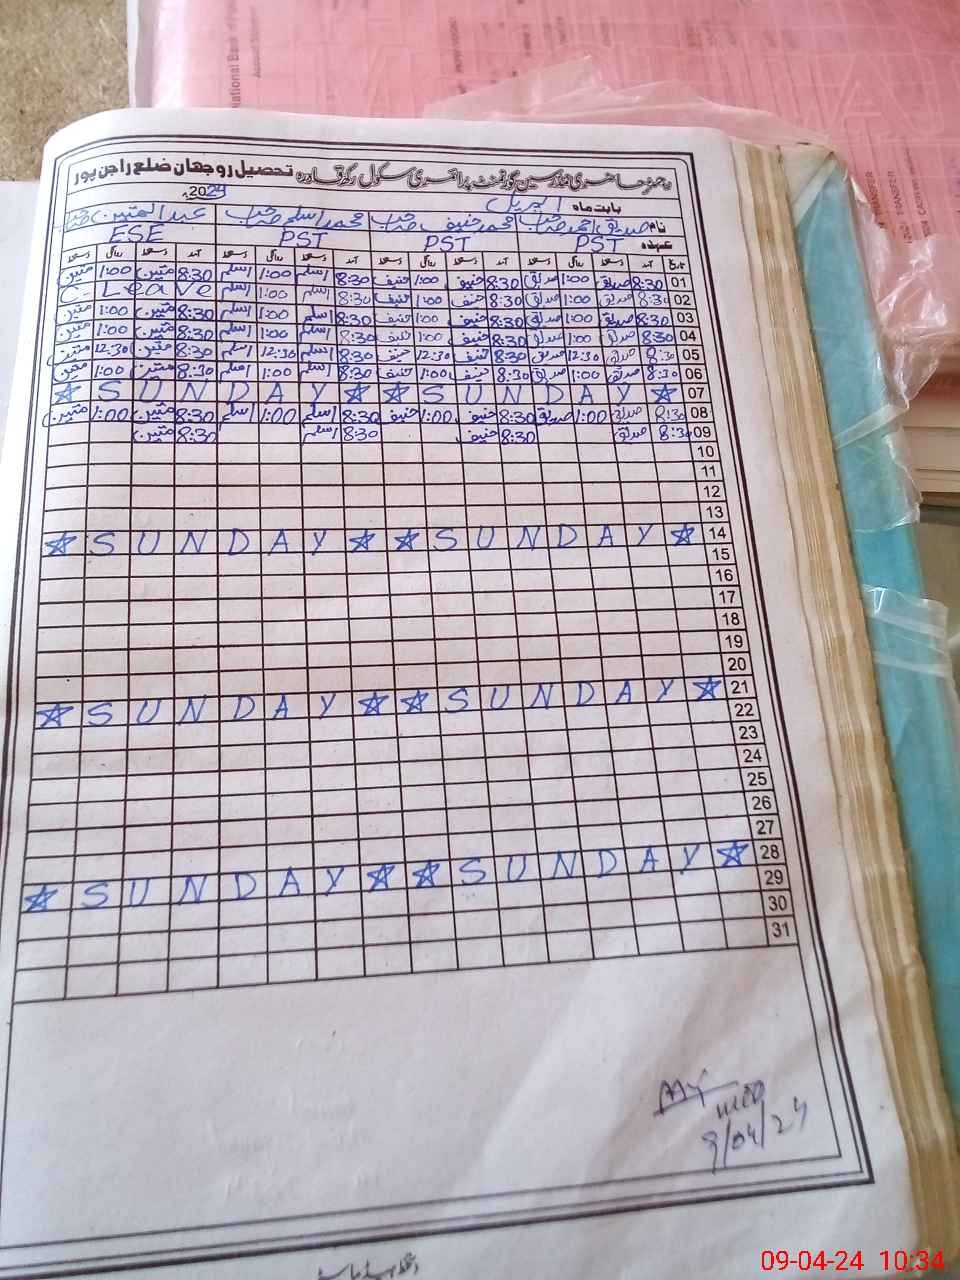 رجسٹر حاضری مدرسین گورنمنٹ پرائمری سکول رکھ قادرہ تحصیل روجھان ضلع راجن پور
بابت ماہ اپریل 2024ء
نام صدیق احمد صاحب محمد حنیف صاحب محمد اسلم صاحب عبدالمتین صاحب
عہدہ PST PST PST ESE
تاریخ آمد دستخط روانگی دستخط آمد دستخط روانگی دستخط آمد دستخط روانگی دستخط آمد دستخط روانگی دستخط
01 8:30 صدیق 1:00 صدیق 8:30 حنیف 1:00 حنیف 8:30 اسلم 1:00 اسلم 8:30 متین 1:00 متین
02 8:30 صدیق 1:00 صدیق 8:30 حنیف 1:00 حنیف 8:30 اسلم 1:00 اسلم C. Leave
03 8:30 صدیق 1:00 صدیق 8:30 حنیف 1:00 حنیف 8:30 اسلم 1:00 اسلم 8:30 متین 1:00 متین
04 8:30 صدیق 1:00 صدیق 8:30 حنیف 1:00 حنیف 8:30 اسلم 1:00 اسلم 8:30 متین 1:00 متین
05 8:30 صدیق 12:30 صدیق 8:30 حنیف 12:30 حنیف 8:30 اسلم 12:30 اسلم 8:30 متین 12:30 متین
06 8:30 صدیق 1:00 صدیق 8:30 حنیف 1:00 حنیف 8:30 اسلم 1:00 اسلم 8:30 متین 1:00 متین
☆ SUNDAY ☆ ☆ SUNDAY ☆ 07
08 8:30 صدیق 1:00 صدیق 8:30 حنیف 1:00 حنیف 8:30 اسلم 1:00 اسلم 8:30 متین 1:00 متین
09 8:30 صدیق 8:30 حنیف 8:30 اسلم 8:30 متین
10
11
12
13
☆ SUNDAY ☆ ☆ SUNDAY ☆ 14
15
16
17
18
19
20
☆ SUNDAY ☆ ☆ SUNDAY ☆ 21
22
23
24
25
26
27
☆ SUNDAY ☆ ☆ SUNDAY ☆ 28
29
30
31
9/04/24
دستخط ہیڈ ماسٹر
09-04-24 10:34
National Bank of
TRANSFER